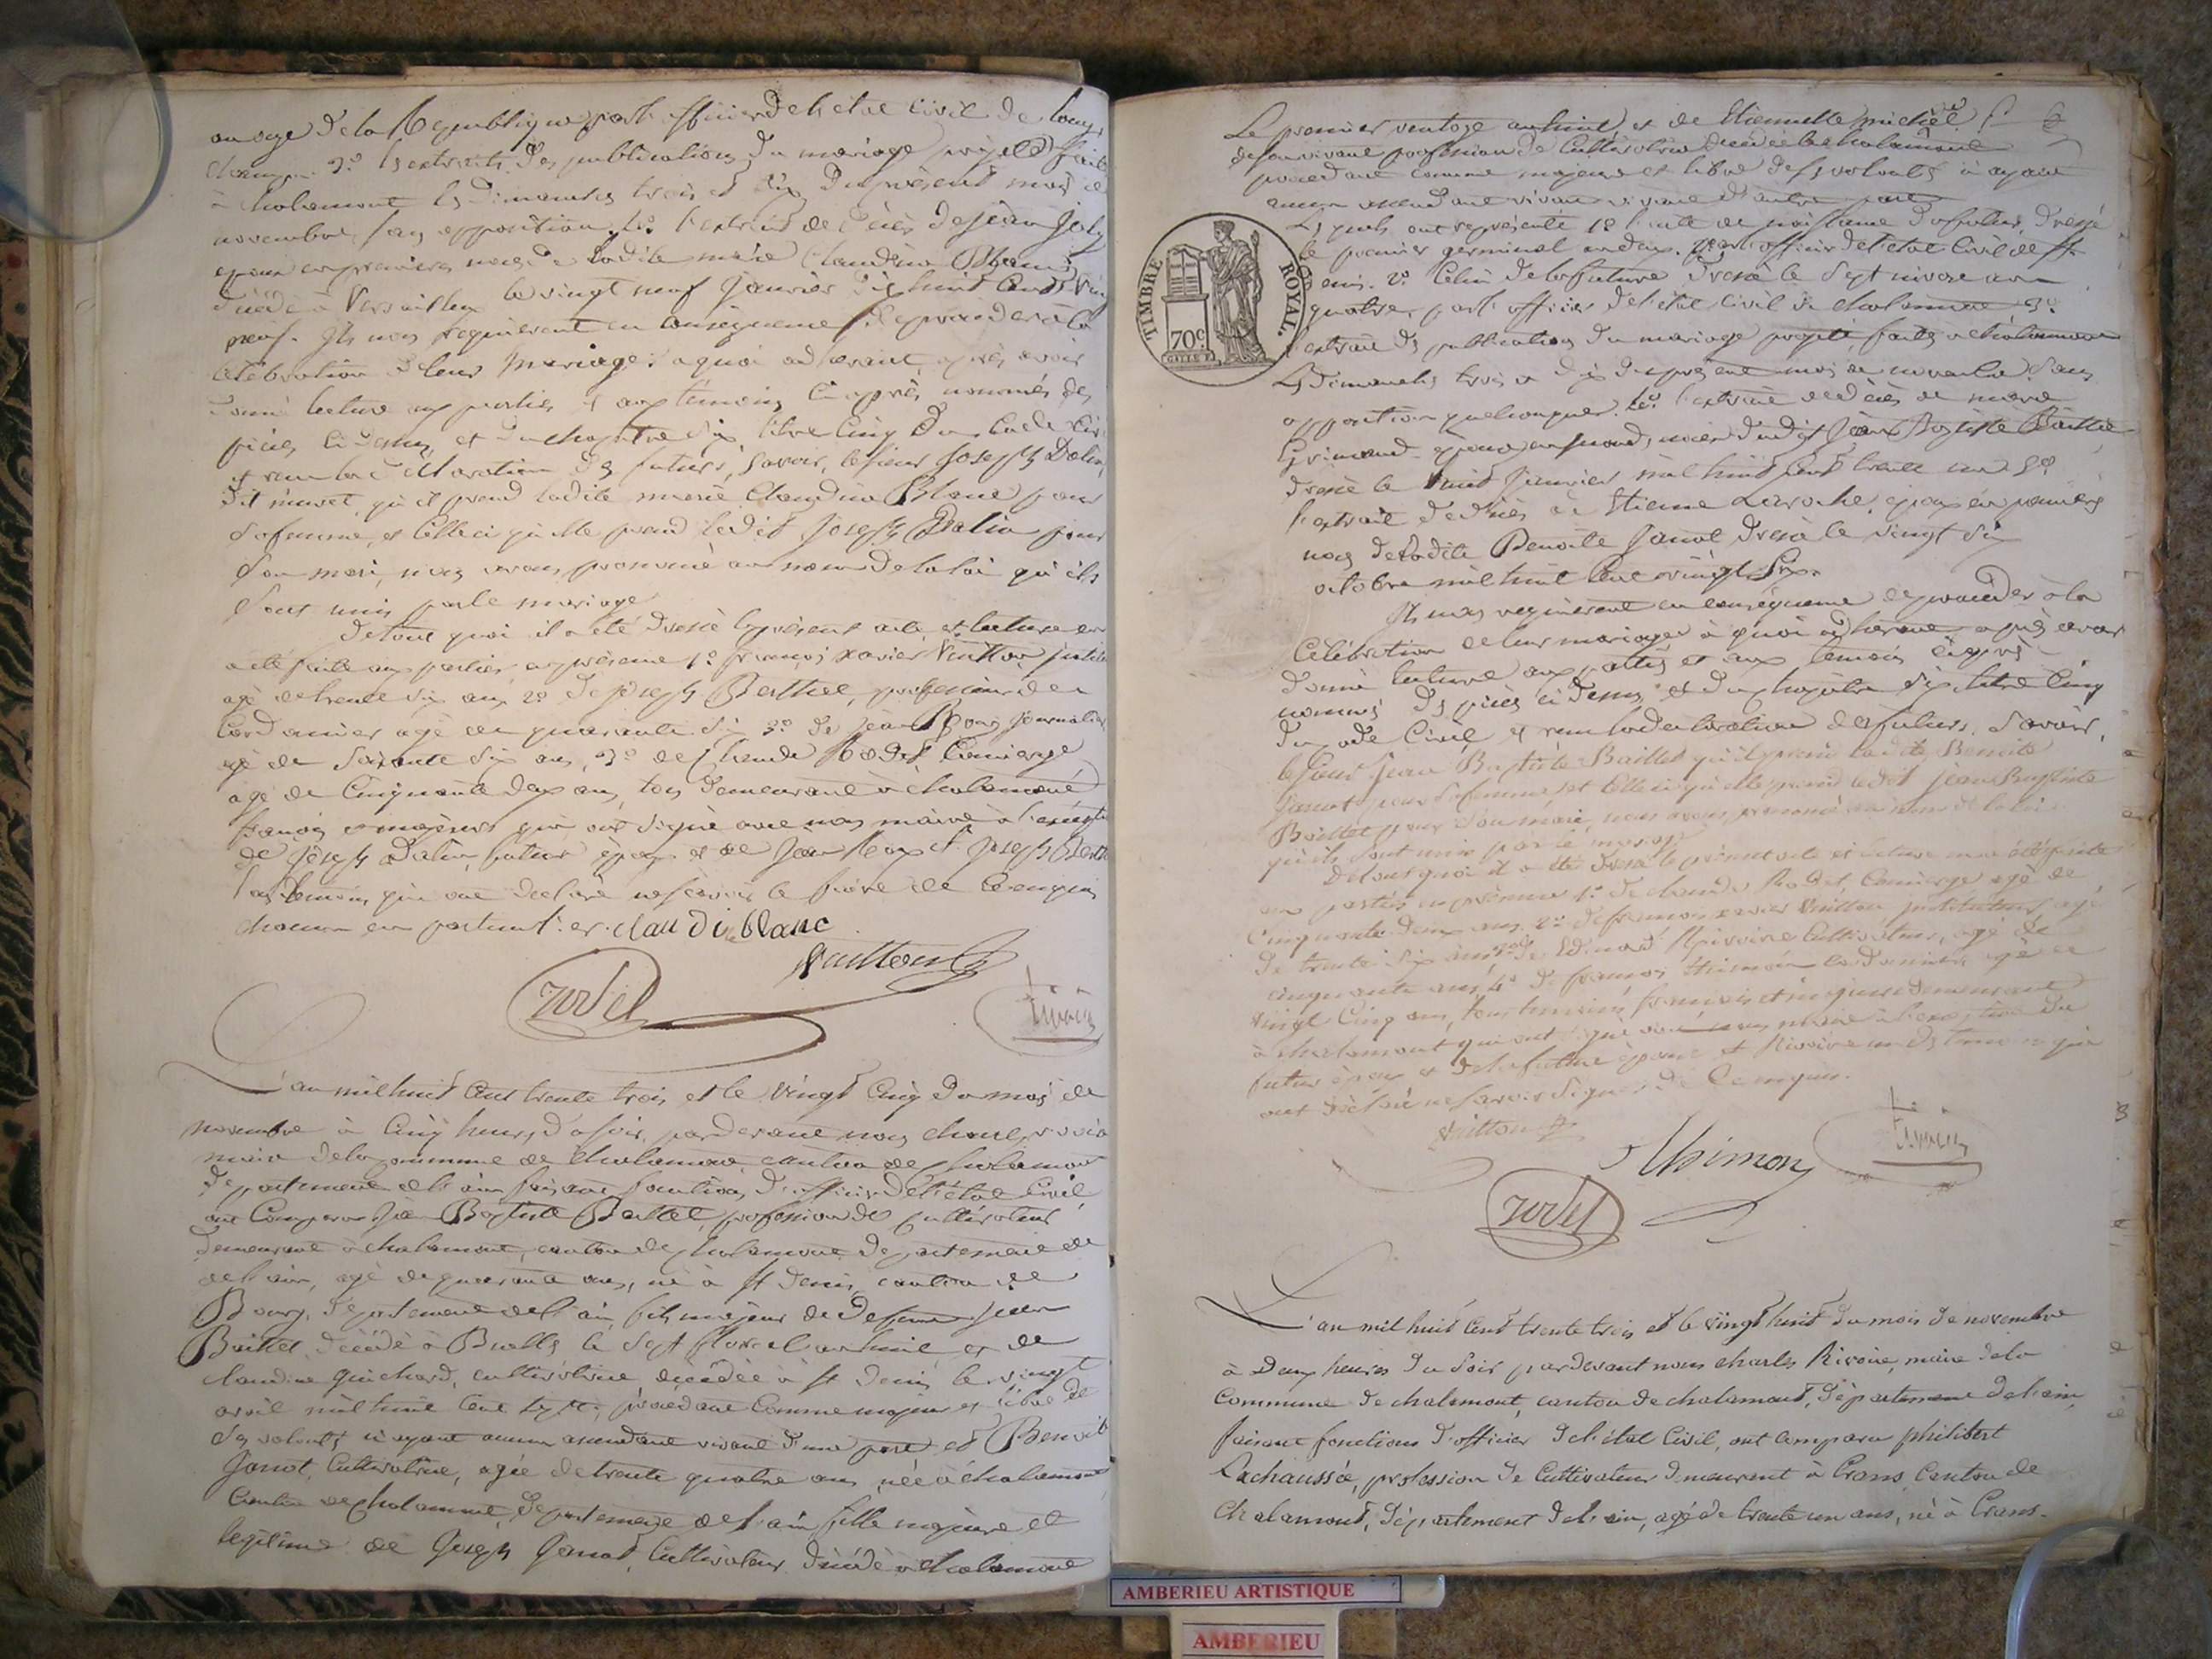 an onze de la République par l'officier de l'état civil de Longe
champ. 3º les extraits des publications du mariage projeté faites
à chalamont les Dimanches trois et dix du présent mois de
novembre sans opposition. 4º l'extrait de décès de jean Joly
époux en premières noces de ladite marie Claudine Blanc,
décédé à Versailleux le vingt neuf Janvier dix huit cent vingt
neuf. Ils nous requièrent en conséquence de procéder à la
célébration de leur mariage: à quoi adhérant, après avoir
donné lecture aux parties et aux témoins ci après nommés des
pièces ci dessus, et du chapitre six, titre cinq du Code Civil
et reçu la déclaration des futurs, savoir, le sieur Joseph Dalin
dit muret, qu'il prend ladite marie Claudine Blanc pour
sa femme, et Celle ci qu'elle prend ledit Joseph Dalin pour
son mari, nous avons prononcé au nom de la loi qu'ils
sont unis par le mariage
De tout quoi il a été dressé le présent acte, et lecture en
a été faite aux parties, en présence 1º françois xavier Vuitton, instituteur
agé de trente six ans, 2º de joseph Berthet, profession de
Cordonnier agé de quarante six 3º de jean journalier
agé de soixante six ans, de Claude Rodet, Concierge
agé de Cinquante deux ans, tous demeurant à chalamont
français et majeurs qui ont signé avec nous maire à l'exception
de Joseph Dalin futur époux et de Jean et Joseph Berthet
témoins qui ont déclaré ne savoir le faire de ce enquis
chacun en particulier. claudi blanc
Vuitton
rodet
L'an mil huit Cent trente trois et le vingt Cinq du mois de
novembre à Cinq heures du soir, pardevant nous charles rivoire
maire de la Commune de chalamont, canton de chalamont
département de l'ain faisant fonctions d'officier de l'état Civil
ont Comparu Jean Baptiste Baillet, profession de Cultivateur,
demeurant à chalamont, canton de chalamont département de
de l'ain, agé de quarante ans, né à st Denis, canton de
Bourg, département de l'ain, fils majeur de Defunt jean
Baillet, décédé à Buelle le sept floréal an huit, et de
claudine Guichard, cultivatrice décédée à st Denis le vingt
avril mil huit cent sept; procédant Comme majeur et libre de
ses volontés n'ayant aucun ascendant vivant d'une part et Benoite
Janot, Cultivatrice, agée de trente quatre ans, née à chalamont
Canton de chalamont, département de l'ain fille majeure et
légitime de Joseph Janot, Cultivateur Décédé à chalamont
Le premier ventose an huit, et de Etiennette michel
de son vivant profession de Cultivatrice décédée à chalamont
procédant comme majeure et libre de ses volontés n'ayant
aucun ascendant vivant d'autre part
Lesquels ont représenté 1º l'acte de naissance du futur, dressé
le premier germinal an deux. par l'officier de l'état Civil de st
Denis. 2º Celui de la future dressé le sept nivose an
quatre, par l'officier de l'état civil de chalamont 3º
l'extrait des publications du mariage projeté, faites à chalamont
Les Dimanches trois et dix du présent mois de novembre sans
opposition quelconque. 4º l'extrait de décès de marie
Grimaud épouse en secondes noces dudit Jean Baptiste Baillet
dressé le huit janvier mil huit cent trente un 5º
l'extrait de décès de Etienne Laroche, époux en premières
noces de ladite Benoite Janot dressé le vingt six
octobre mil huit Cent vingt six.
Ils nous requièrent en conséquence de procéder à la
Célébration de leur mariage: à quoi adhérant, après avoir
donné lecture aux parties et aux témoins ci après
nommés des pièces ci dessus, et du chapitre six, titre Cinq
du code Civil et reçu la déclaration des futurs, savoir,
le sieur Jean Baptiste Baillet qu'il prend ladite Benoite
Janot pour sa femme, et Celle ci qu'elle prend ledit jean Baptiste
Baillet pour son mari, nous avons prononcé au nom de la loi
qu'ils sont unis par le mariage
De tout quoi il a été dressé le présent acte et lecture en a été faite
aux parties en présence 1º de claude Rodet, Concierge agé de
Cinquante deux ans 2º de françois xavier Vuitton instituteur, agé
de trente six ans 3º de Rivoire Cultivateur, agé de
cinquante ans, 4º de françois agé de
vingt Cinq ans, tous témoins français et majeurs demeurant
à chalamont qui ont signé avec nous maire à l'exception du
futur époux et de la future épouse et Rivoire un des témoins qui
ont déclaré ne savoir signer de ce enquis.
Vuitton
rodet
L'an mil huit Cent trente trois et le vingt huit du mois de novembre
à Deux heures du Soir pardevant nous charles Rivoire, maire de la
Commune de chalamont, canton de chalamont, département de l'ain,
faisant fonctions d'officier de l'état Civil, ont comparu philibert
Lachaussée, profession de Cultivateur demeurant à Crans, Canton de
Chalamont, département de l'ain, agé de trente un ans, né à Crans.
TIMBRE ROYAL.
70c.
AMBERIEU ARTISTIQUE
AMBERIEU